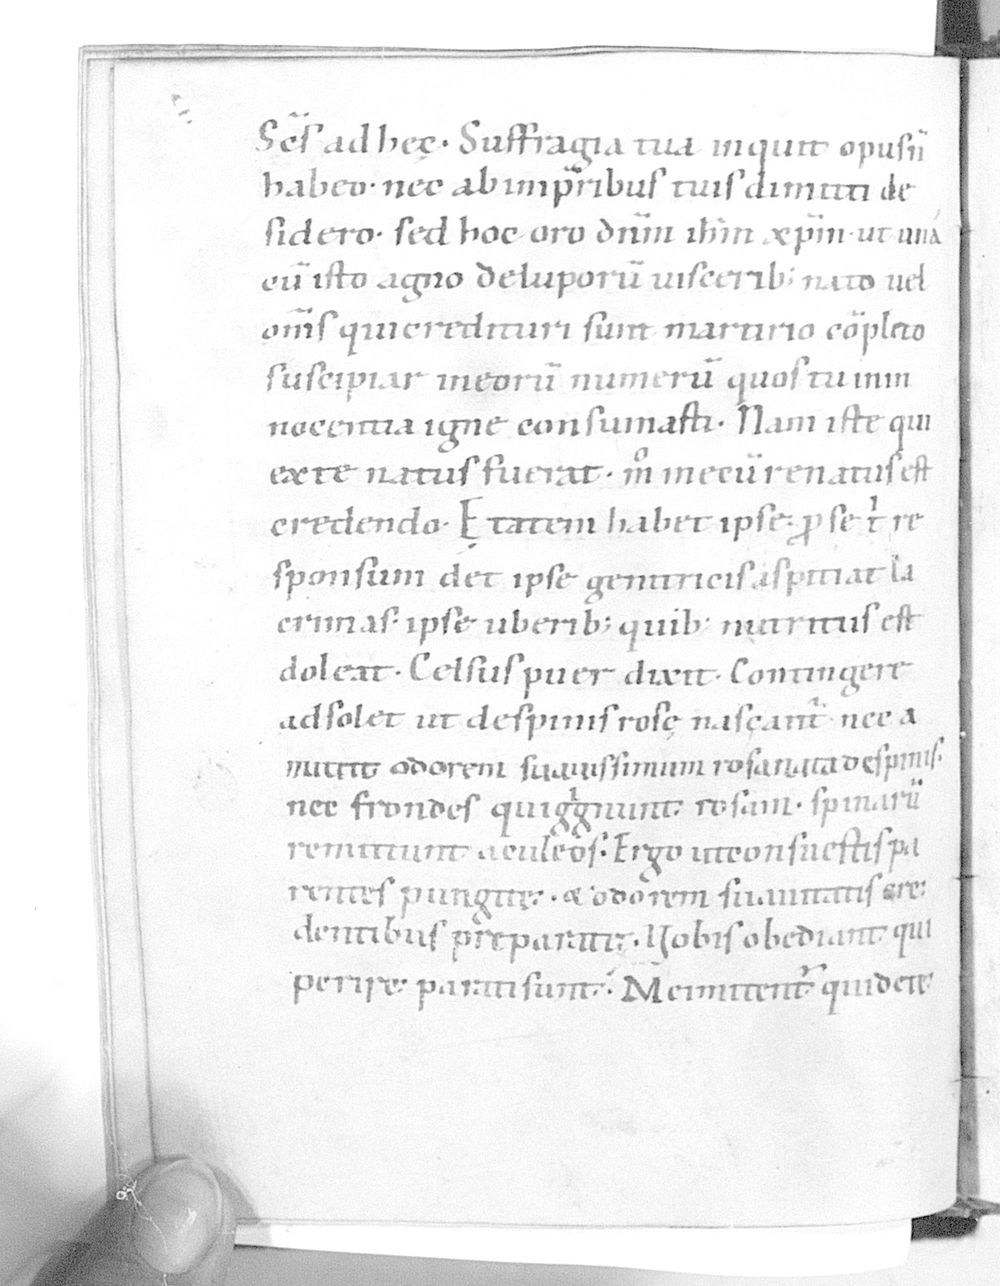 Sc̄s ad hęc. Suffragia tua inquit opus n̄
habeo. nec ab imp̄ribus tuis dimitti de
sidero. sed hoc oro dn̄m ih̄m xp̄m. ut una
cū isto agno de luporū uiscerib; nato uel
om̄s qui credituri sunt martirio cōpleto
suscipiar in eorū numerū quos tu in in
nocentia igne consumasti. Nam iste qui
ex te natus fuerat. m̊ mecū renatus est
credendo. Ętatem habet ipse. ꝓ se t̄ re
sponsum det ipse genitricis aspitiat la
crimas. ipse uberib; quib; nutritus est
doleat. Celsus puer dixit. Contingere
adsolet ut de spinis rosę nascant̄ nec a
mittit odorem suauissimum rosa nata de spinis.
nec frondes qui giḡnunt rosam. spinarū
remittunt aculeos. Ergo ut consuestis pa
rentes pungite. & odorem suauitatis cre
dentibus pręparate. Uobis obediant qui
perire parati sunt. Me imitent̄ qui de te